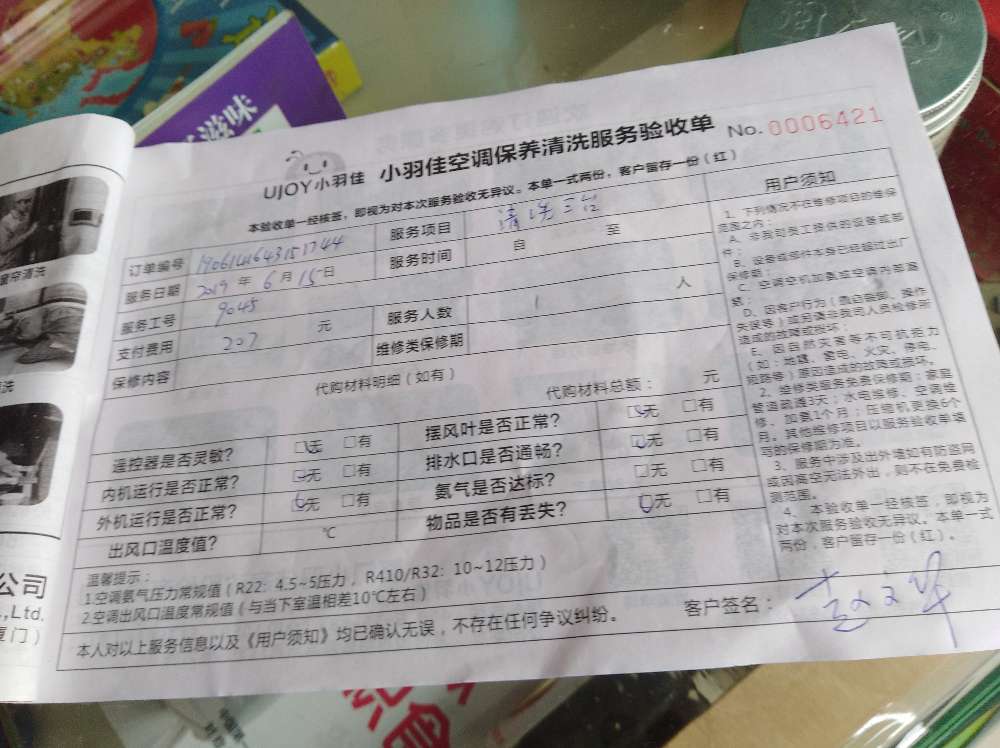 滋味
UJOY小羽佳 小羽佳空调保养清洗服务验收单 No. 0006421
本验收单一经核签，即视为对本次服务验收无异议。本单一式两份，客户留存一份（红）
订单编号 服务项目 清洗三台
服务日期 2019 年 6 月 15 日 服务时间 自 至
服务工号 9045 服务人数 1 人
支付费用 207 元 维修类保修期
保修内容
代购材料明细（如有） 代购材料总额： 元
遥控器是否灵敏？ □无 □有 摆风叶是否正常？ □无 □有
内机运行是否正常？ □无 □有 排水口是否通畅？ □无 □有
外机运行是否正常？ □无 □有 氨气是否达标？ □无 □有
出风口温度值？ ℃ 物品是否有丢失？ □无 □有
温馨提示：
1.空调氨气压力常规值（R22：4.5~5压力，R410/R32：10~12压力）
2.空调出风口温度常规值（与当下室温相差10℃左右）
本人对以上服务信息以及《用户须知》均已确认无误，不存在任何争议纠纷。 客户签名：
用户须知
1、下列情况不在维修项目的维保
范围之内：
A、非我司员工提供的设备或部
件；
B、设备或部件本身已经超过出厂
保修期；
C、空调空机加氨或空调内部漏
氨；
D、因客户行为（擅自拆卸、操作
失误等）或另请非我司人员检修所
造成的故障或损坏；
E、因自然灾害等不可抗拒力
（如：地震、雷电、火灾、停电、
短路等）原因造成的故障或损坏。
2、维修类服务免费保修期：家庭
管道疏通3天；水电维修、空调维
修、加氨1个月；压缩机更换6个
月。其他维修项目以服务验收单填
写的保修期为准。
3、服务中涉及出外墙如有防盗网
或因高空无法外出，则不在免费检
测范围。
4、本验收单一经核签，即视为
对本次服务验收无异议。本单一式
两份，客户留存一份（红）。
清洗
公司
,Ltd.
厦门）